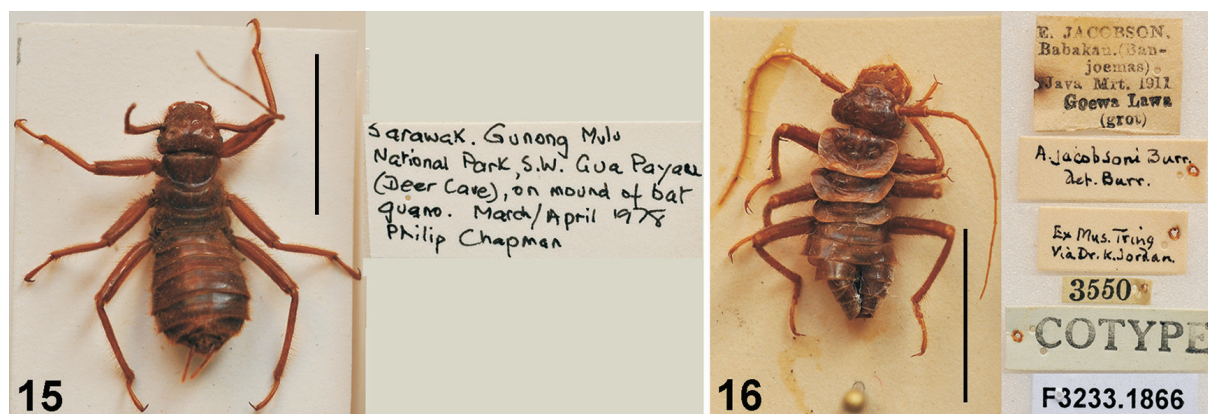 Sarawak. Gunong Mulu
National Park, S.W. Gua Payau
(Deer Cave), on mound of bat
guano. March/April 1978
Philip Chapman
15
E. JACOBSON.
Babakan.(Ban-
joemas)
Java Mrt. 1911
Goewa Lawa
(grot)
A. jacobsoni Burr.
det. Burr.
Ex Mus. Tring
Via Dr. K. Jordan.
3550
COTYPE
F3233.1866
16